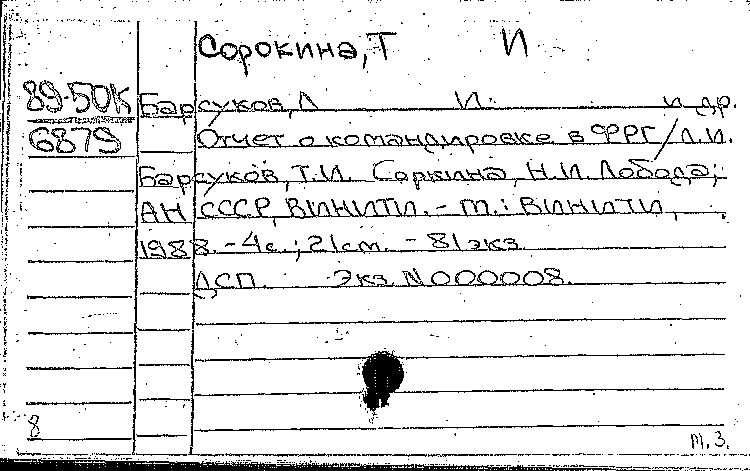 Сорокина, Т И
89-50К Барсуков, Л И. и др.
6879 Отчет о командировке в ФРГ / Л.И.
Барсуков, Т.И. Соркина, Н.И. Лобода;
АН СССР, ВИНИТИ. - М.: ВИНИТИ,
1988. - 4с.; 21см. - 81экз.
ДСП. Экз. N000008.
8
М.З.